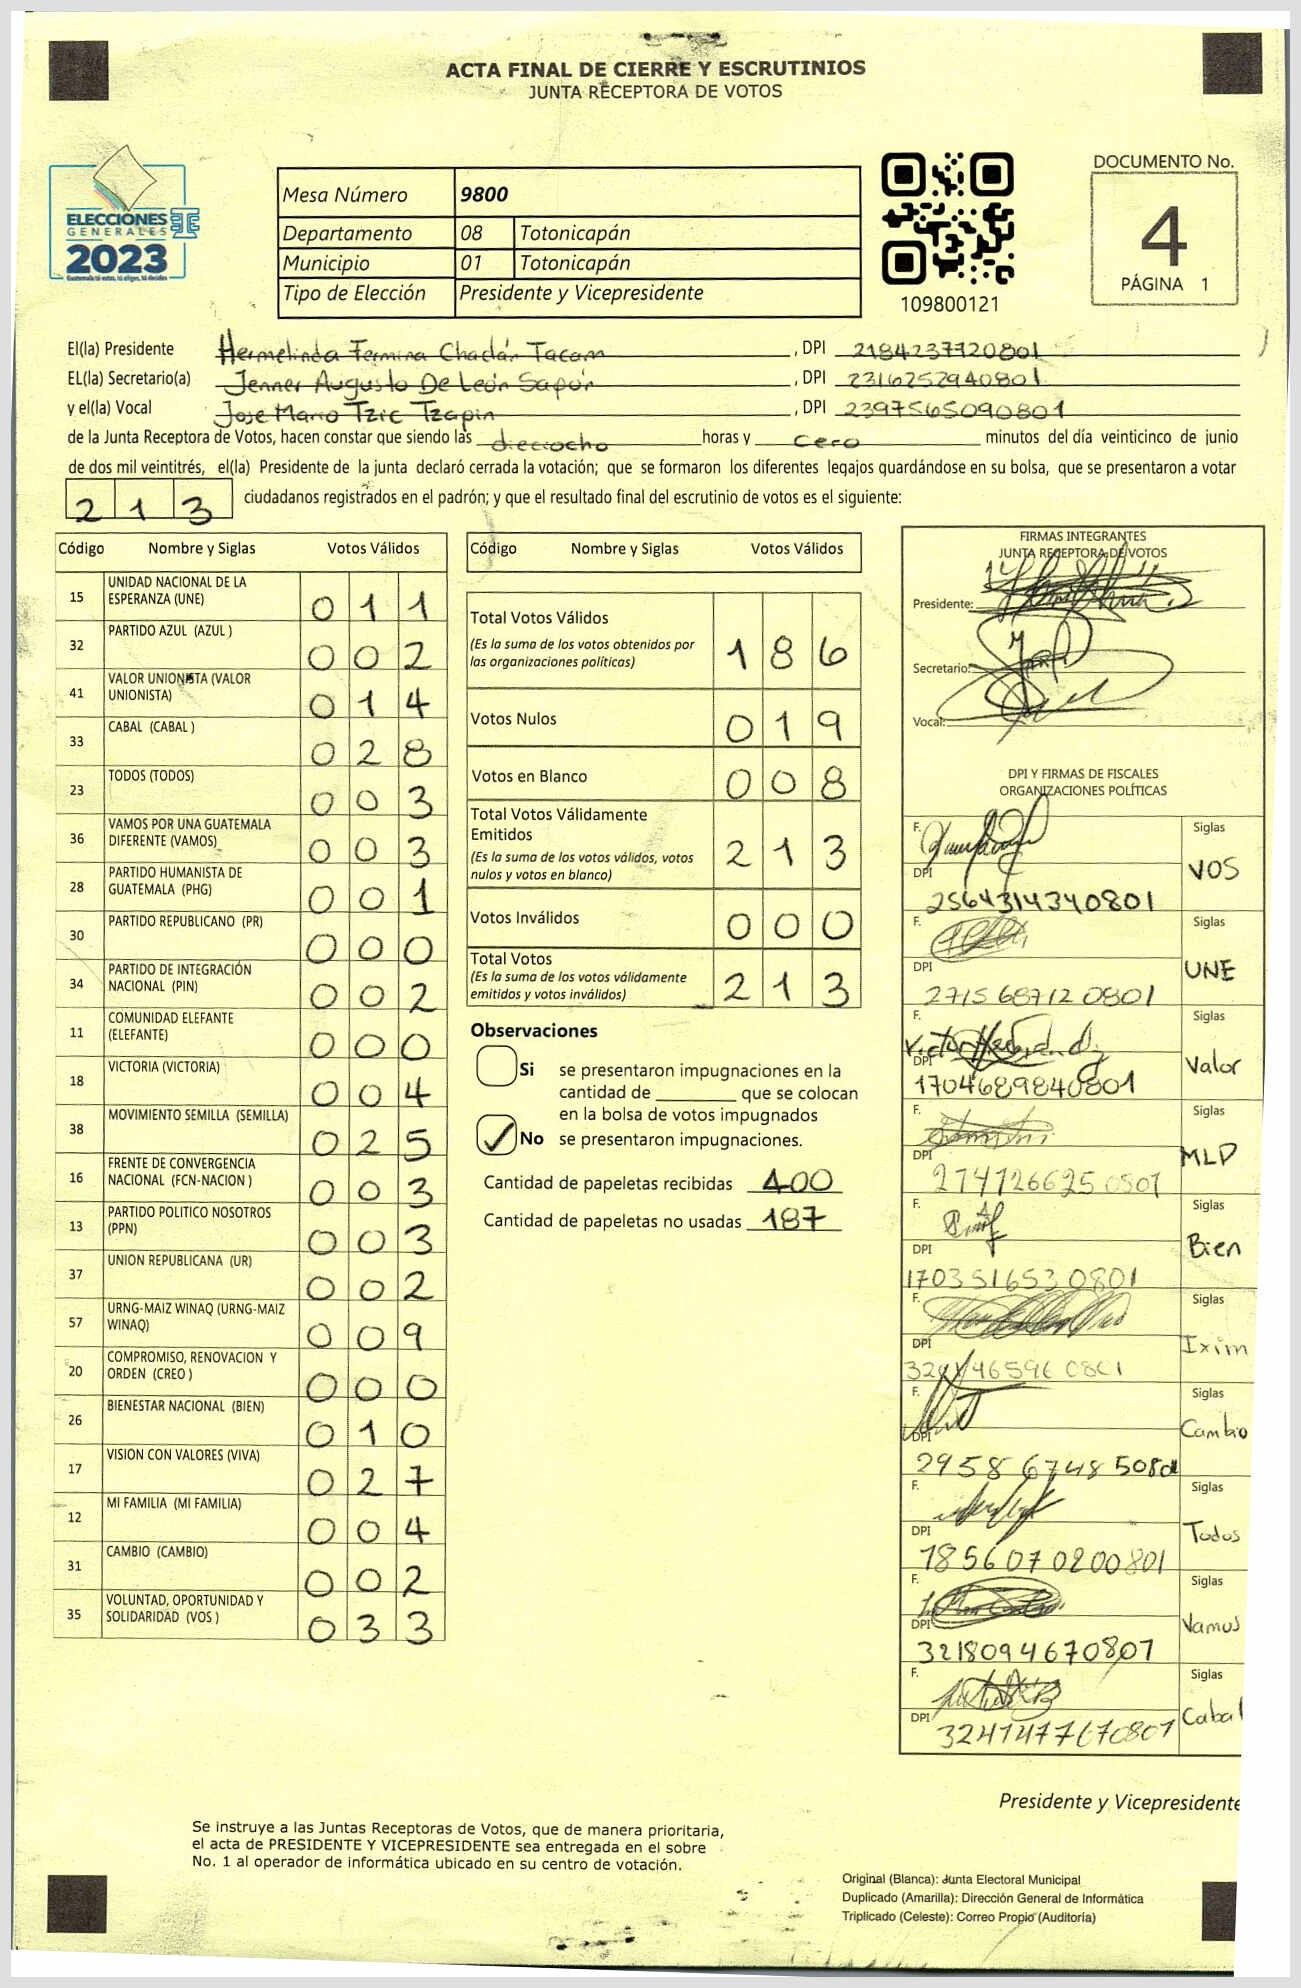 ACTA FINAL DE CIERRE Y ESCRUTINIOS
JUNTA RECEPTORA DE VOTOS
ELECCIONES
GENERALES
2023
Mesa Número 9800
Departamento 08 Totonicapán
Municipio 01 Totonicapán
Tipo de Elección Presidente y Vicepresidente
109800121
DOCUMENTO No.
4
PÁGINA 1
El(la) Presidente Hermelinda Fermina Chaclán Tacam, DPI 2184237720801
EL(la) Secretario(a) Jenner Augusto De León Sapón, DPI 2316252940801
y el(la) Vocal Jose Mario Tzic Tzapin, DPI 2397565090801
de la Junta Receptora de Votos, hacen constar que siendo las dieciocho horas y cero minutos del día veinticinco de junio
de dos mil veintitrés, el(la) Presidente de la junta declaró cerrada la votación; que se formaron los diferentes legajos guardándose en su bolsa, que se presentaron a votar
213 ciudadanos registrados en el padrón; y que el resultado final del escrutinio de votos es el siguiente:
Código Nombre y Siglas Votos Válidos
15 UNIDAD NACIONAL DE LA ESPERANZA (UNE) 011
32 PARTIDO AZUL (AZUL ) 002
41 VALOR UNIONISTA (VALOR UNIONISTA) 014
33 CABAL (CABAL ) 028
23 TODOS (TODOS) 003
36 VAMOS POR UNA GUATEMALA DIFERENTE (VAMOS) 003
28 PARTIDO HUMANISTA DE GUATEMALA (PHG) 001
30 PARTIDO REPUBLICANO (PR) 000
34 PARTIDO DE INTEGRACIÓN NACIONAL (PIN) 002
11 COMUNIDAD ELEFANTE (ELEFANTE) 000
18 VICTORIA (VICTORIA) 004
38 MOVIMIENTO SEMILLA (SEMILLA) 025
16 FRENTE DE CONVERGENCIA NACIONAL (FCN-NACION ) 003
13 PARTIDO POLITICO NOSOTROS (PPN) 003
37 UNION REPUBLICANA (UR) 002
57 URNG-MAIZ WINAQ (URNG-MAIZ WINAQ) 009
20 COMPROMISO, RENOVACION Y ORDEN (CREO ) 000
26 BIENESTAR NACIONAL (BIEN) 010
17 VISION CON VALORES (VIVA) 027
12 MI FAMILIA (MI FAMILIA) 004
31 CAMBIO (CAMBIO) 002
35 VOLUNTAD, OPORTUNIDAD Y SOLIDARIDAD (VOS ) 033
Código Nombre y Siglas Votos Válidos
Total Votos Válidos 186
(Es la suma de los votos obtenidos por
las organizaciones políticas)
Votos Nulos 019
Votos en Blanco 008
Total Votos Válidamente
Emitidos 213
(Es la suma de los votos válidos, votos
nulos y votos en blanco)
Votos Inválidos 000
Total Votos 213
(Es la suma de los votos válidamente
emitidos y votos inválidos)
Observaciones
Si se presentaron impugnaciones en la
cantidad de ________ que se colocan
en la bolsa de votos impugnados
No se presentaron impugnaciones.
Cantidad de papeletas recibidas 400
Cantidad de papeletas no usadas 187
FIRMAS INTEGRANTES
JUNTA RECEPTORA DE VOTOS
Presidente:
Secretario:
Vocal:
DPI Y FIRMAS DE FISCALES
ORGANIZACIONES POLÍTICAS
F. Siglas
DPI VOS
2564314340801
F. Siglas
DPI UNE
2715687120801
F. Siglas
DPI Valor
1704689840801
F. Siglas
DPI MLP
F. Siglas
DPI Bien
1703516530801
F. Siglas
DPI Ixim
F. Siglas
DPI Cambio
F. Siglas
DPI Todos
1856070200801
F. Siglas
DPI Vamos
3218094670807
F. Siglas
DPI Cabal
Presidente y Vicepresidente
Se instruye a las Juntas Receptoras de Votos, que de manera prioritaria,
el acta de PRESIDENTE Y VICEPRESIDENTE sea entregada en el sobre
No. 1 al operador de informática ubicado en su centro de votación.
Original (Blanca): Junta Electoral Municipal
Duplicado (Amarilla): Dirección General de Informática
Triplicado (Celeste): Correo Propio (Auditoría)